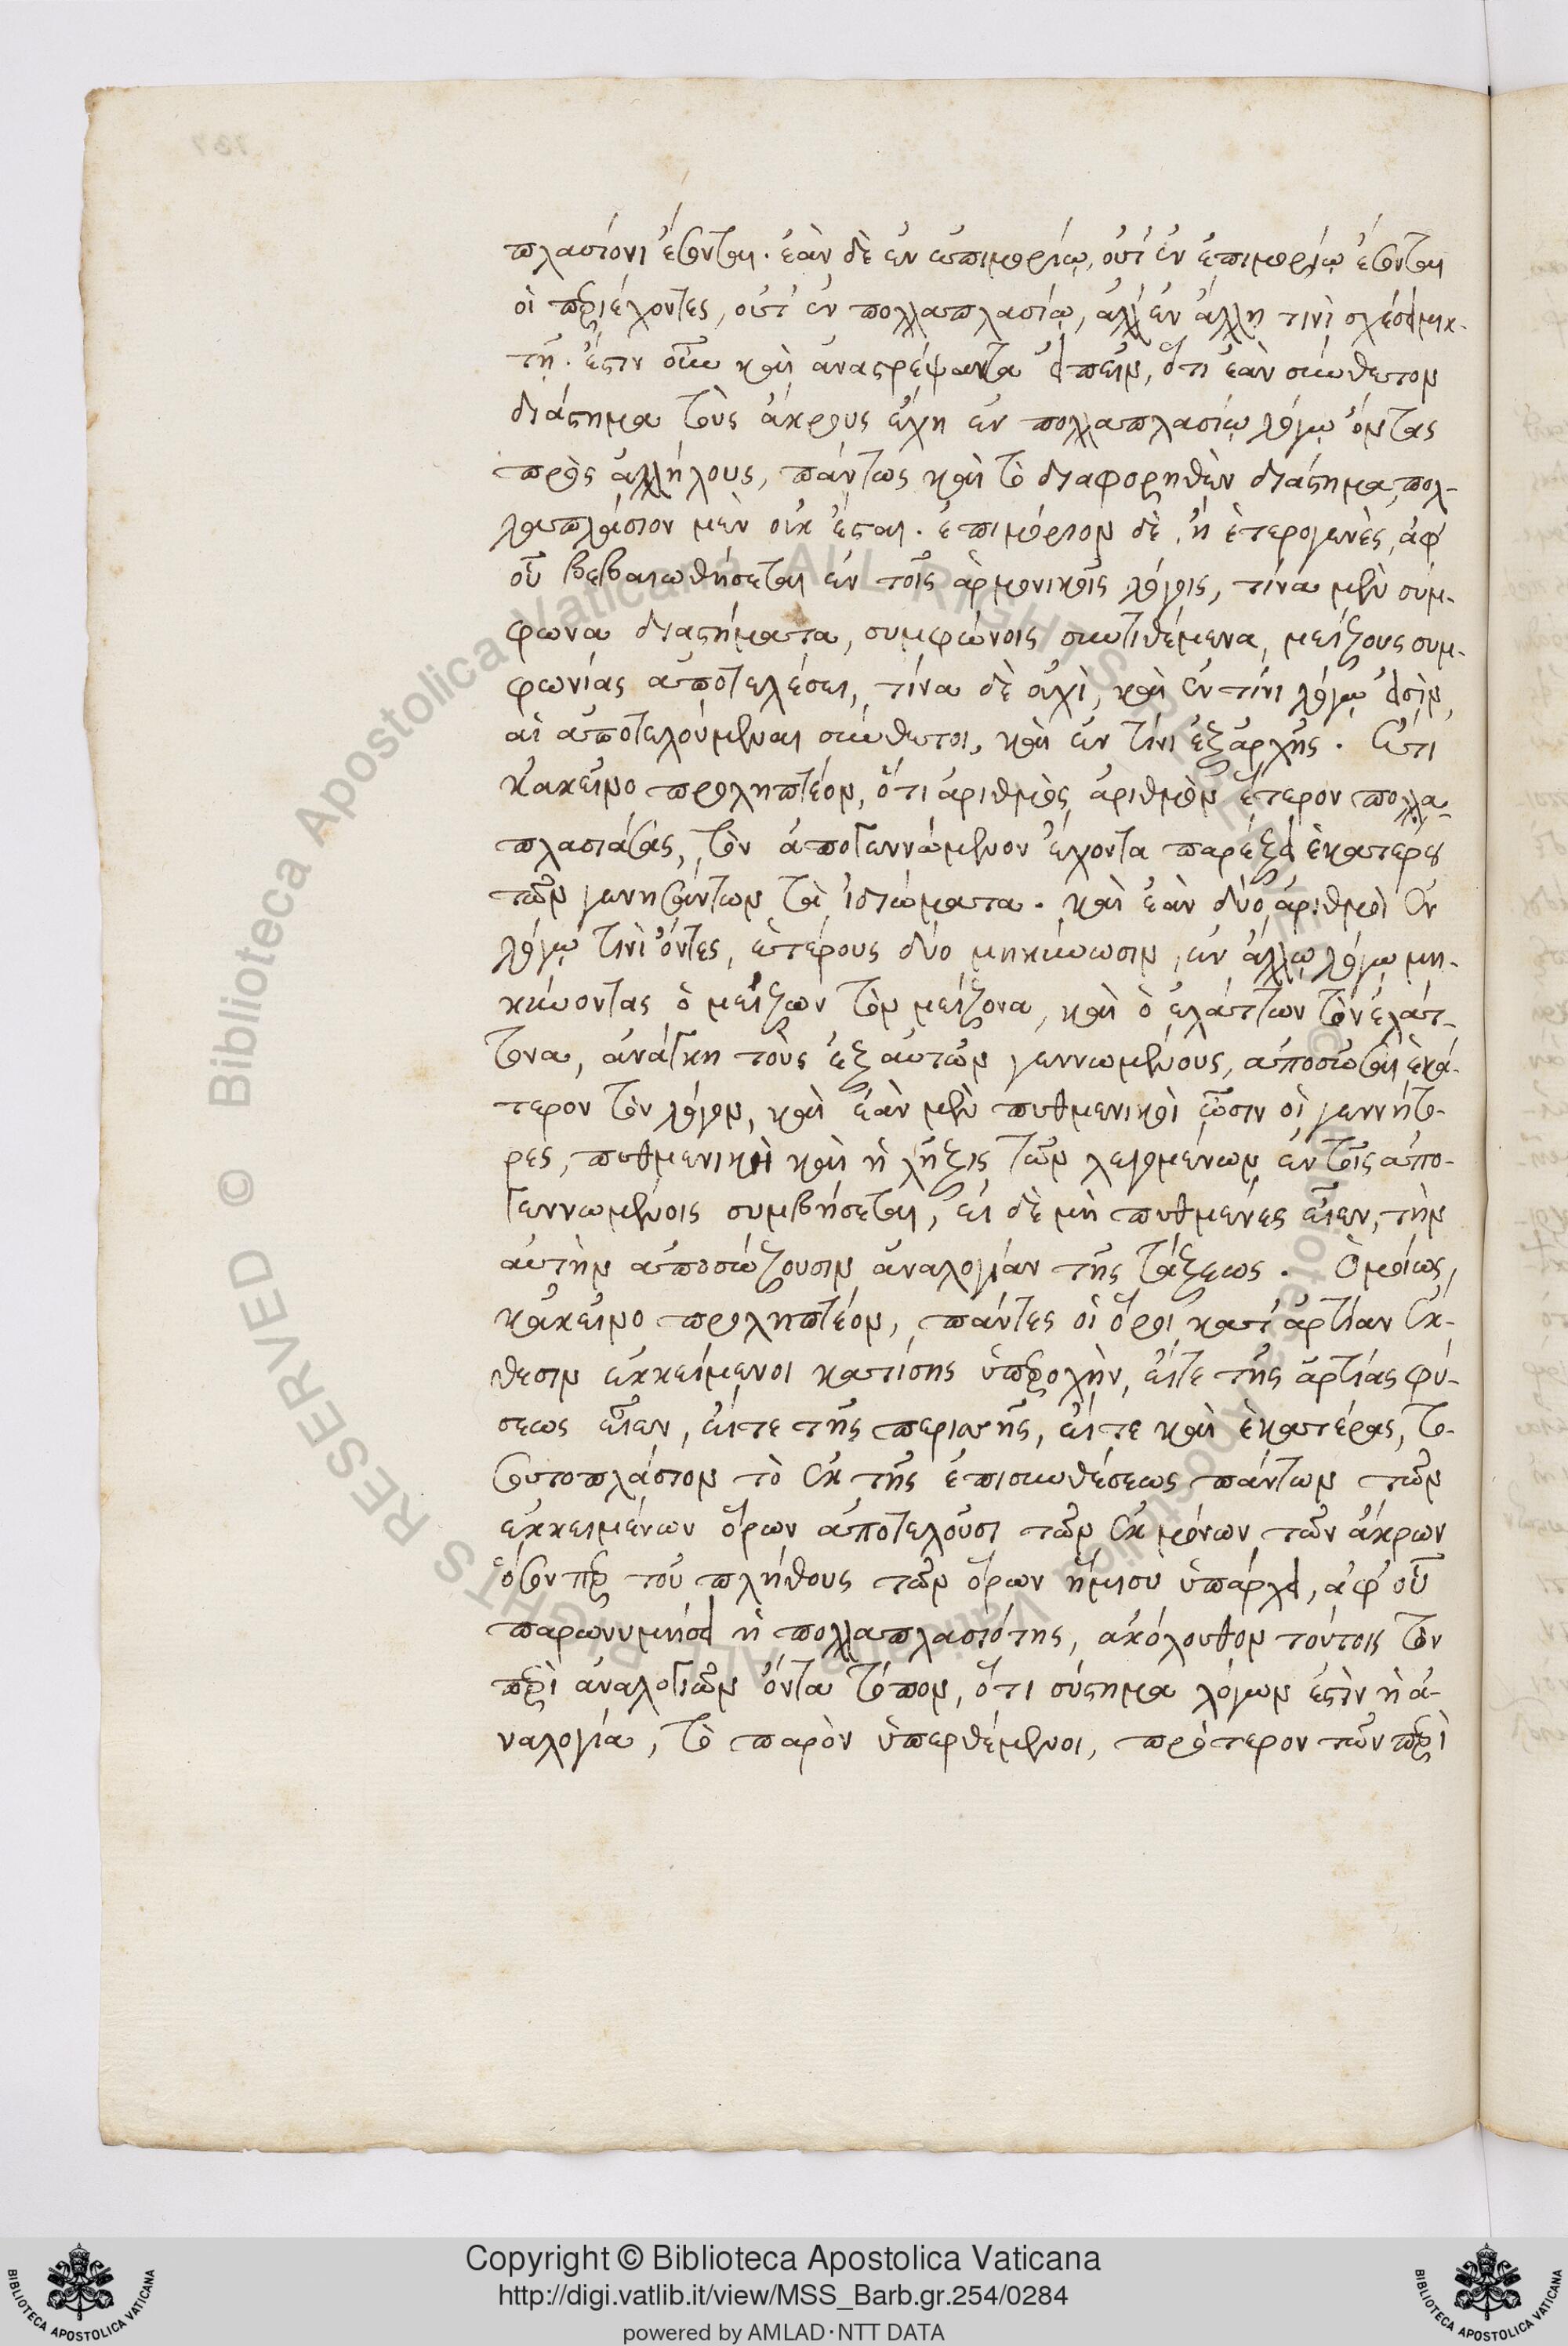 πλασίονι ἔσονται. ἐὰν δὲ ἐν ἐπιμορίῳ, οὔτ' ἐν ἐπιμορίῳ ἔσονται
οἱ περιέχοντες, οὔτ' ἐν πολλαπλασίῳ, ἀλλ' ἐν ἄλλη τινὶ σχέσει μικ-
τῇ. ἔστιν οὖν καὶ ἀναστρέψαντα εἰπεῖν, ὅτι ἐὰν σύνθετον
διάστημα τοὺς ἄκρους ἔχη ἐν πολλαπλασίῳ λόγῳ ὄντας
πρὸς ἀλλήλους, πάντως καὶ τὸ διαφορηθὲν διάστημα, πολ-
λαπλάσιον μὲν οὐκ ἔσται. ἐπιμόριον δὲ, ἢ ἑτερογενὲς, ἀφ'
οὗ βεβαιωθήσεται ἐν τοῖς ἁρμονικοῖς λόγοις, τίνα μὲν σύμ-
φωνα διαστήματα, συμφώνοις συντιθέμενα, μείζους συμ-
φωνίας ἀποτελέσει, τίνα δὲ οὐχὶ, καὶ ἐν τίνι λόγῳ εἰσὶν,
αἱ ἀποτελούμεναι σύνθετοι, καὶ ἐν τίνι ἐξαρχῆς. ἔτι
κἀκεῖνο προληπτέον, ὅτι ἀριθμὸς ἀριθμὸν ἕτερον πολλα-
πλασιάσας, τὸν ἀπογεννώμενον ἔχοντα παρέξει ἑκατέρου
τῶν γεννησάντων τὰ ἰδιώματα. καὶ ἐὰν δύο ἀριθμοὶ ἐν
λόγῳ τινὶ ὄντες, ἑτέρους δύο μηκύνωσιν, ἐν ἄλλῳ λόγῳ μη-
κύνοντας ὁ μείζων τὸν μείζονα, καὶ ὁ ἐλάττων τὸν ἐλάτ-
τονα, ἀνάγκη τοὺς ἐξ αὐτῶν γεννωμένους, ἀποσῶσαι ἑκά-
τερον τὸν λόγον, καὶ ἐὰν μὲν πυθμενικοὶ ὦσιν οἱ γεννήτο-
ρες, πυθμενικὴ καὶ ἡ λῆξις τῶν λεγομένων ἐν τοῖς ἀπο-
γεννωμένοις συμβήσεται, εἰ δὲ μὴ πυθμένες εἶεν, τὴν
αὐτὴν ἀποσώζουσιν ἀναλογίαν τῆς τάξεως. Ὁμοίως,
κἀκεῖνο προληπτέον, πάντες οἱ ὅροι κατ' ἀρτίαν ἔκ-
θεσιν ἐκκείμενοι κατίσης ὑπεροχὴν, εἴτε τῆς ἀρτίας φύ-
σεως εἶεν, εἴτε τῆς περισσῆς, εἴτε καὶ ἑκατέρας, το-
σουτοπλάσιον τὸ ἐκ τῆς ἐπισυνθέσεως πάντων τῶν
ἐκκειμένων ὅρων ἀποτελοῦσι τῶν ἐκ μόνων τῶν ἄκρων
ὅσονπερ τοῦ πλήθους τῶν ὅρων ἥμισυ ὑπάρχει, ἀφ' οὗ
παρωνυμήσει ἡ πολλαπλασιότης, ἀκόλουθον τούτοις τὸν
περὶ ἀναλογιῶν ὄντα τόπον, ὅτι σύστημα λόγων ἐστὶν ἡ ἀ-
ναλογία, τὸ παρὸν ὑπερθέμενοι, πρότερον τῶν περὶ
Copyright © Biblioteca Apostolica Vaticana
http://digi.vatlib.it/view/MSS_Barb.gr.254/0284
powered by AMLAD·NTT DATA
BIBLIOTECA APOSTOLICA VATICANA
BIBLIOTECA APOSTOLICA VATICANA